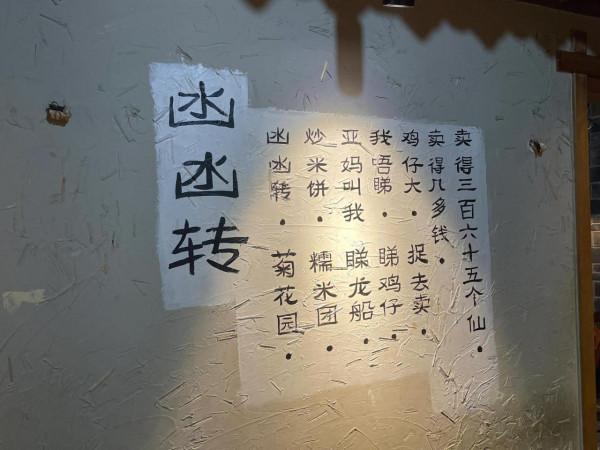 凼凼转
凼凼转.菊花园.
炒米饼.糯米团.
亚妈叫我睇龙船.
我唔睇.睇鸡仔.
鸡仔大.捉去卖.
卖得几多钱.
卖得三百六十五个仙.